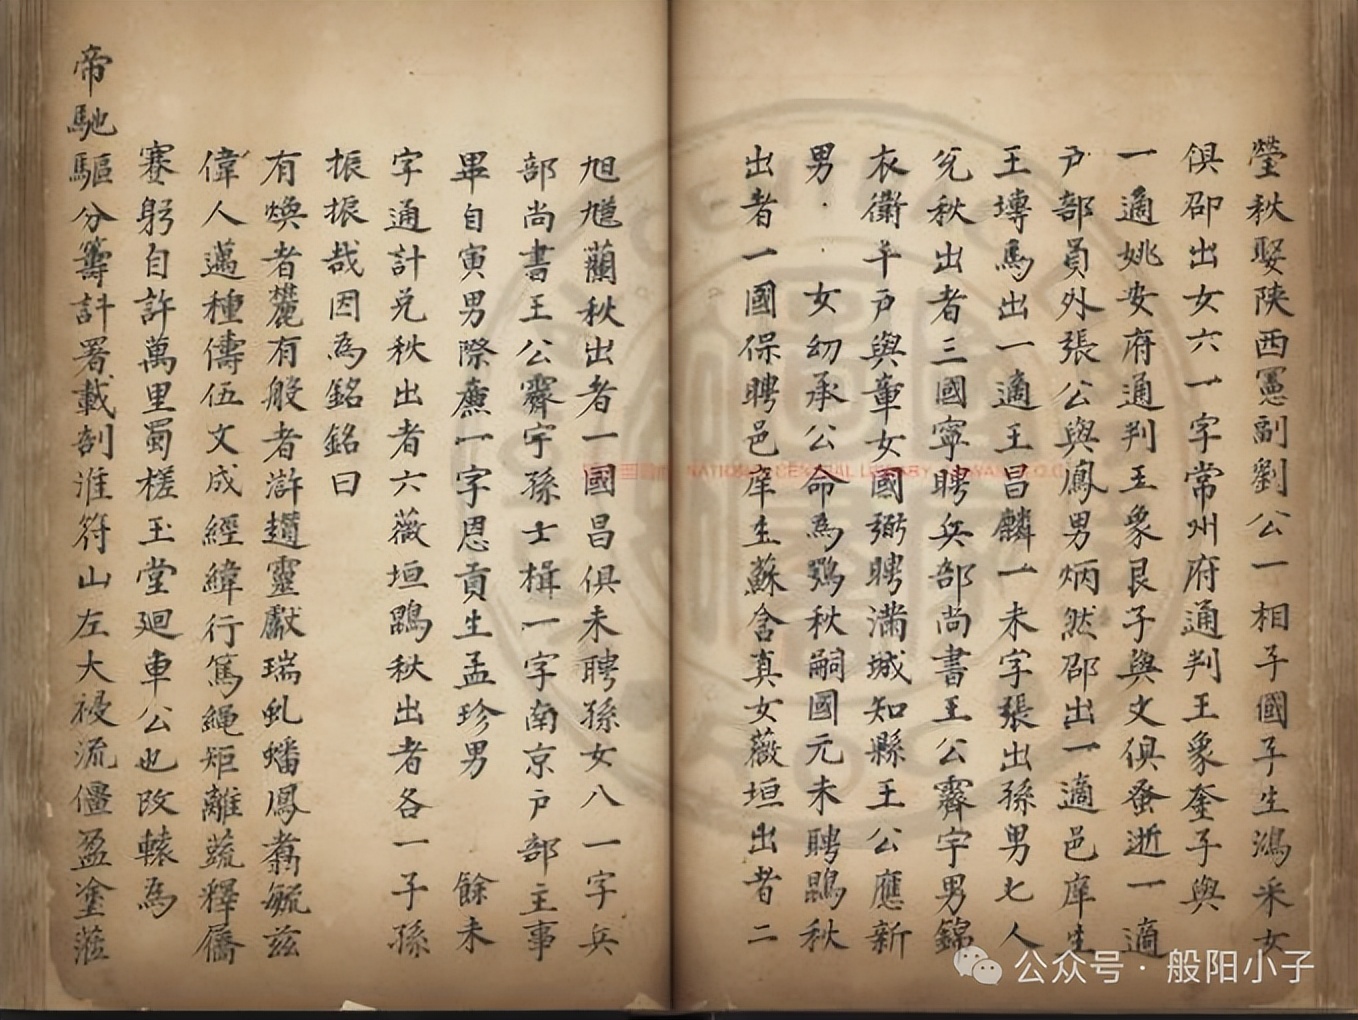 瑩秋娶陝西憲副劉公一相子國子生鴻采女
俱邵出女六一字常州府通判王象奎子與
一適姚安府通判王象艮子與文俱蚤逝一適
戶部員外張公與鳳男炳然邵出一適邑庠生
王塼馬出一適王昌麟一未字張出孫男七人
兊秋出者三國寧聘兵部尚書王公霽宇男錦
衣衛千戶與葦女國弼聘滿城知縣王公應新
男
女幼承公命為鶚秋嗣國元未聘鷃秋
出者一國保聘邑庠生蘇含真女薇垣出者二
旭馗蘭秋出者一國昌俱未聘孫女八一字兵
部尚書王公霽宇孫士楫一字南京戶部主事
畢自寅男際譍一字恩貢生孟珍男 餘未
字通計兊秋出者六薇垣鷃秋出者各一子孫
振振哉因為銘銘曰
有煥者麓有般者滸趙靈獻瑞虬蟠鳳翥毓茲
偉人邁種儔伍文成經緯行篤繩矩離蔬釋屩
蹇躬自許萬里蜀槎玉堂迴車公也改轅為
帝馳驅分籌計署載剖淮符山左大祲流僵盈塗蒞
國家圖書館 NATIONAL CENTRAL LIBRARY, TAIWAN, R.O.C
公众号 · 般阳小子